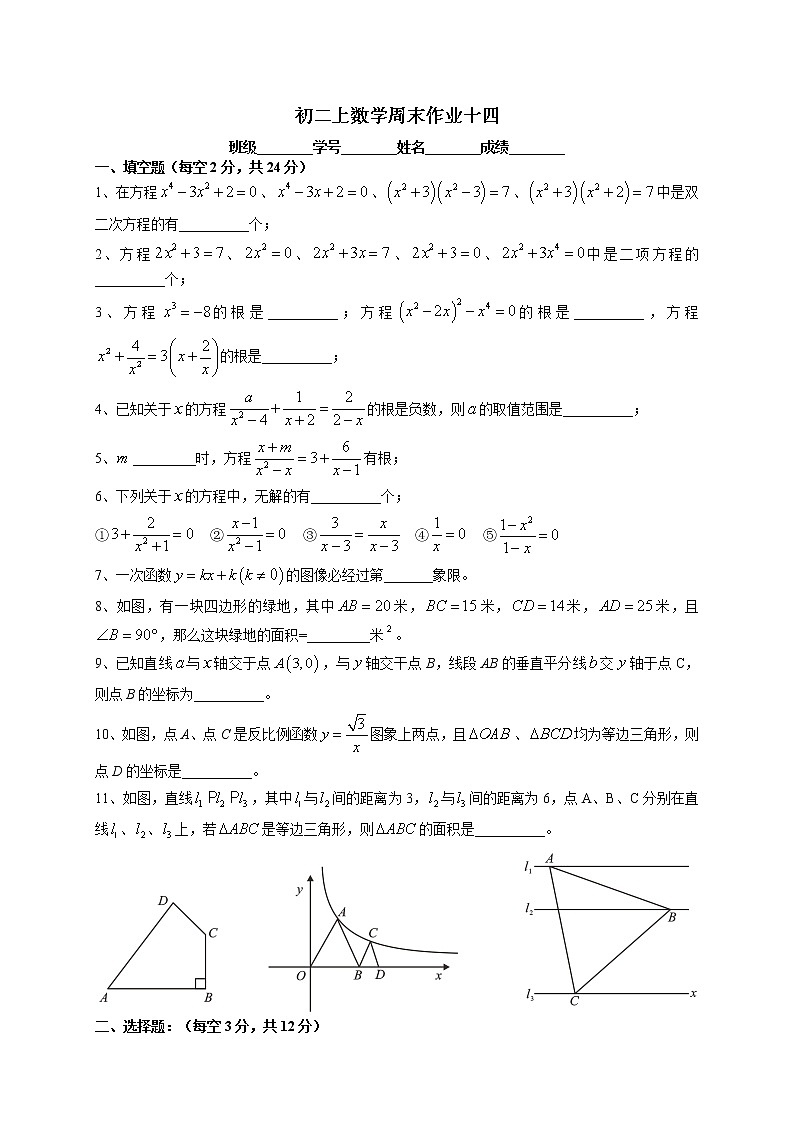 初二上数学周末作业十四
班级________学号________姓名________成绩________
一、填空题（每空2分，共24分）
1、在方程x⁴−3x²+2=0、x⁴−3x+2=0、(x²+3)(x²−3)=7、(x²+3)(x²+2)=7中是双
二次方程的有__________个；
2、方程2x²+3=7、2x²=0、2x²+3x=7、2x²+3=0、2x²+3x⁴=0中是二项方程的
__________个；
3、方程x³=−8的根是__________；方程(x²−2x)²−x⁴=0的根是__________，方程
x²+4/x²=3(x+2/x)的根是__________；
4、已知关于x的方程a/(x²−4)+1/(x+2)=2/(2−x)的根是负数，则a的取值范围是__________；
5、m _________时，方程(x+m)/(x²−x)=3+6/(x−1)有根；
6、下列关于x的方程中，无解的有__________个；
①3+2/(x²+1)=0 ②(x−1)/(x²−1)=0 ③3/(x−3)=x/(x−3) ④1/x=0 ⑤(1−x²)/(1−x)=0
7、一次函数y=kx+k(k≠0)的图像必经过第_______象限。
8、如图，有一块四边形的绿地，其中AB=20米，BC=15米，CD=14米，AD=25米，且
∠B=90°，那么这块绿地的面积=_________米²。
9、已知直线a与x轴交于点A(3,0)，与y轴交干点B，线段AB的垂直平分线b交y轴于点C，
则点B的坐标为__________。
10、如图，点A、点C是反比例函数y=√3/x图象上两点，且ΔOAB、ΔBCD均为等边三角形，则
点D的坐标是__________。
11、如图，直线l₁ Pl₂ Pl₃，其中l₁与l₂间的距离为3，l₂与l₃间的距离为6，点A、B、C分别在直
线l₁、l₂、l₃上，若ΔABC是等边三角形，则ΔABC的面积是__________。
D
C
A
B
y
A
C
O
B
D
x
l₁
A
l₂
B
l₃
C
x
二、选择题：（每空3分，共12分）